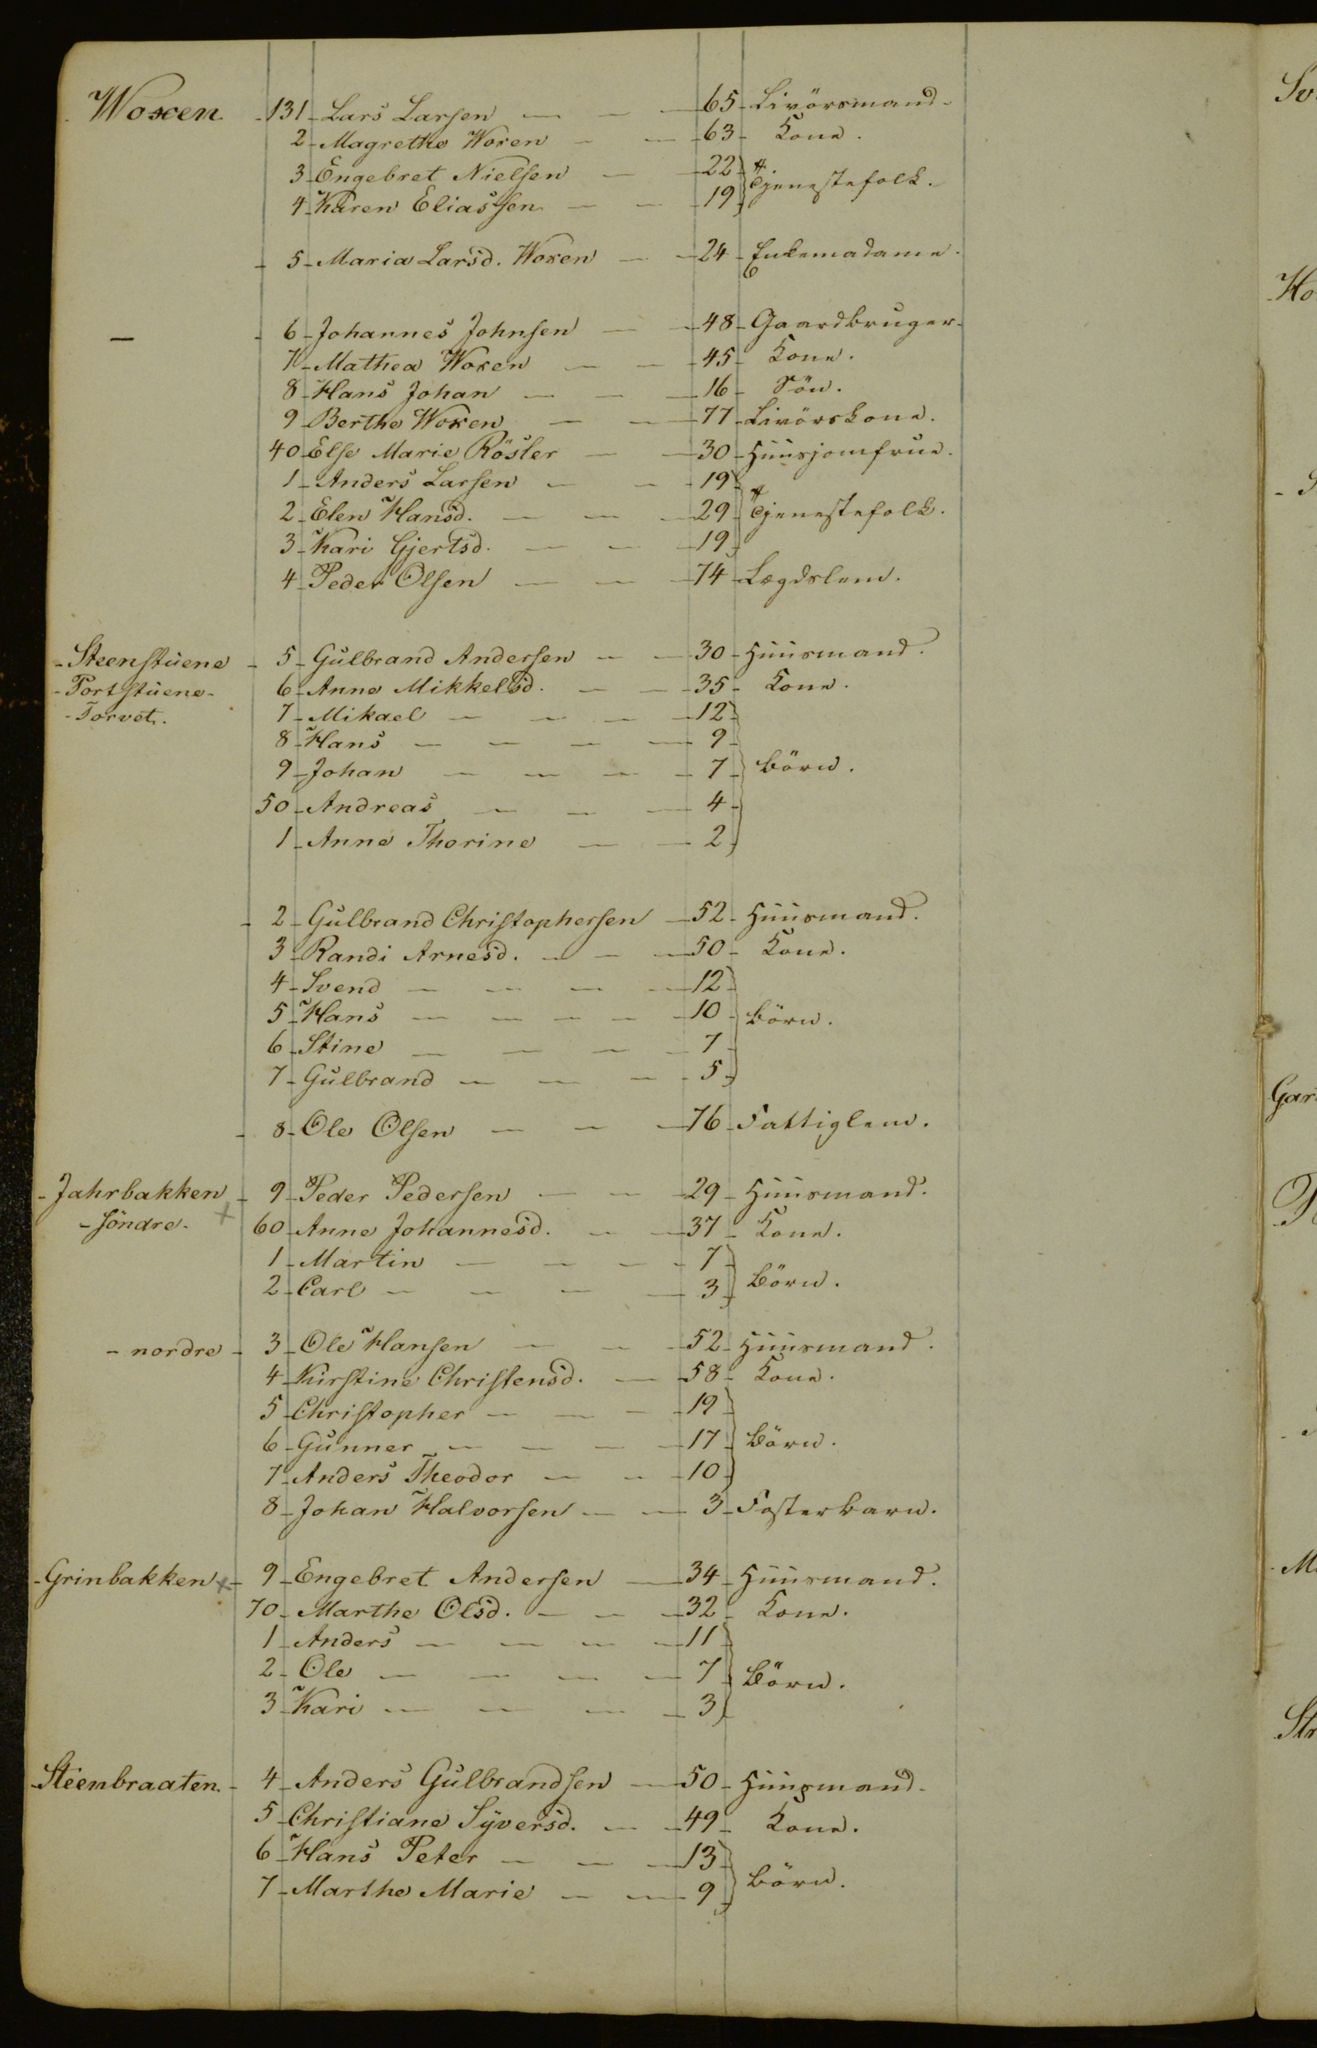 Woxen. 131 Lars Larsen — — 65 Livörsmand.
2 Magrethe Woxen — — 63 Kone.
3 Engebret Nielsen — — 22 } Tjenestefolk.
4 Karen Eliassen — — 19
5 Maria Larsd. Woxen — — 24 Enkemadame.
— 6 Johannes Johnsen — — 48 Gaardbruger.
7 Mathea Woxen — — 45 Kone.
8 Hans Johan — — — 16 Sön.
9 Berthe Woxen — — 77 Livörskone.
40 Else Marie Rösler — — 30 Huusjomfrue.
1 Anders Larsen — — 19
2 Elen Hansd. — — — 29 } Tjenestefolk.
3 Kari Gjertsd. — — — 19
4 Peder Olsen — — — 74 Lægdslem.
Steenstuene 5 Gulbrand Andersen — — 30 Huusmand.
Portstuene 6 Anne Mikkelsd. — — 35 Kone.
Torvet. 7 Mikael — — — — 12
8 Hans — — — — 9
9 Johan — — — — 7 } Börn.
50 Andreas — — — 4
1 Anne Thorine — — 2
2 Gulbrand Christophersen — 52 Huusmand.
3 Randi Arnesd. — — — 50 Kone.
4 Svend — — — — 12
5 Hans — — — — 10 } Börn.
6 Stine — — — — 7
7 Gulbrand — — — 5
8 Ole Olsen — — — 76 Fattiglem.
Jahrbakken 9 Peder Pedersen — — 29 Huusmand.
- söndre. + 60 Anne Johannesd. — — 37 Kone.
1 Martin — — — — 7 } Börn.
2 Carl — — — — 3
- nordre 3 Ole Hansen — — — 52 Huusmand.
4 Kirstine Christensd. — 58 Kone.
5 Christopher — — — 19
6 Gunner — — — — 17 } Börn.
7 Anders Theodor — — 10
8 Johan Halvorsen — — 3 Fosterbarn.
Grinbakken x 9 Engebret Andersen — 34 Huusmand.
70 Marthe Olsd. — — — 32 Kone.
1 Anders — — — — 11
2 Ole — — — — 7 } Börn.
3 Kari — — — — 3
Steenbraaten. 4 Anders Gulbrandsen — 50 Huusmand.
5 Christiane Syversd. — — 49 Kone.
6 Hans Peter — — — 13 } Börn.
7 Marthe Marie — — 9